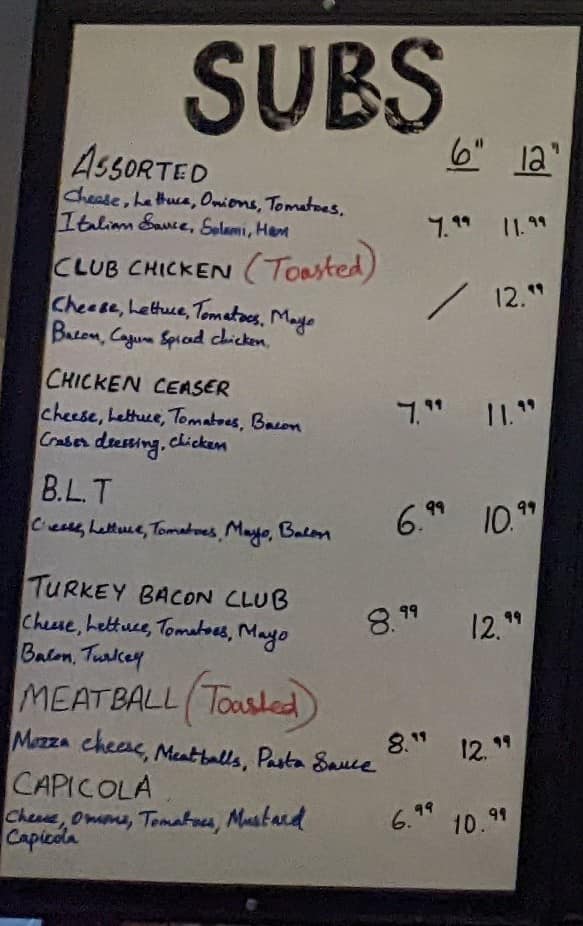 SUBS
6" 12"
ASSORTED
Cheese, Lettuce, Onions, Tomatoes,
Italian Sauce, Salami, Ham 7.99 11.99
CLUB CHICKEN (Toasted)
Cheese, Lettuce, Tomatoes, Mayo / 12.99
Bacon, Cajun Spiced chicken,
CHICKEN CEASER
Cheese, Lettuce, Tomatoes, Bacon 7.99 11.99
Ceaser dressing, chicken
B.L.T
Cheese, Lettuce, Tomatoes, Mayo, Bacon 6.99 10.99
TURKEY BACON CLUB
Cheese, Lettuce, Tomatoes, Mayo 8.99 12.99
Bacon, Turkey
MEATBALL (Toasted)
Mozza cheese, Meatballs, Pasta Sauce 8.99 12.99
CAPICOLA
Cheese, Onions, Tomatoes, Mustard 6.99 10.99
Capicola